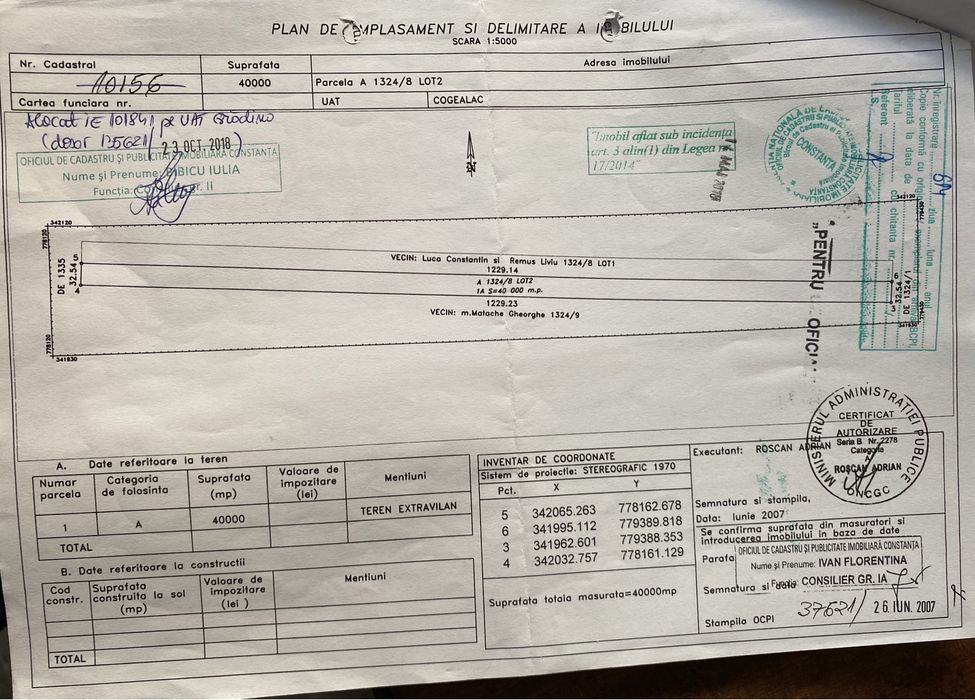 PLAN DE AMPLASAMENT SI DELIMITARE A IMOBILULUI
SCARA 1:5000
Nr. Cadastral
Suprafata
Adresa imobilului
10156
40000
Parcela A 1324/8 LOT2
Cartea funciara nr.
UAT
COGEALAC
Alocat IE 101841 pe UAT Gradina
(dosar 135621/
23. OCT. 2018
OFICIUL DE CADASTRU ȘI PUBLICITATE IMOBILIARĂ CONSTANȚA
Nume și Prenume BIBICU IULIA
Funcția: gr. II
"Imobil aflat sub incidența
art. 3 alin(1) din Legea nr
17/2014"
MAI 2018
CONSTANȚA
Nr. înregistrare ziua luna anul
Copie conformă cu originalul
eliberată la data de
tariful cu chitanța nr.
Referent
L.S.
342120
778120
779430
VECIN: Luca Constantin si Remus Liviu 1324/8 LOT1
1229.14
A 1324/8 LOT2
1A S=40 000 m.p.
1229.23
VECIN: m.Matache Gheorghe 1324/9
DE 1335
32.54
5
4
6
3
32.54
DE 1324/1
778120
341830
341830
779430
"PENTRU
OFICI
A. Date referitoare la teren
Numar parcela
Categoria de folosinta
Suprafata (mp)
Valoare de impozitare (lei)
Mentiuni
1
A
40000
TEREN EXTRAVILAN
TOTAL
B. Date referitoare la constructii
Cod constr.
Suprafata construita la sol (mp)
Valoare de impozitare (lei )
Mentiuni
TOTAL
INVENTAR DE COORDONATE
Sistem de proiectie: STEREOGRAFIC 1970
Pct. X Y
5 342065.263 778162.678
6 341995.112 779389.818
3 341962.601 779388.353
4 342032.757 778161.129
Suprafata totala masurata=40000mp
Executant: ROSCAN ADRIAN
MINISTERUL ADMINISTRATIEI PUBLICE
CERTIFICAT
DE
AUTORIZARE
Seria B Nr. 2278
Categoria
ROȘCAN ADRIAN
ONCGC
Semnatura si stampila,
Data: Iunie 2007
Se confirma suprafata din masuratori si
introducerea imobilului in baza de date
Parafa
OFICIUL DE CADASTRU ȘI PUBLICITATE IMOBILIARĂ CONSTANȚA
Nume și Prenume: IVAN FLORENTINA
Funcția: CONSILIER GR. IA
Semnatura si data
37621/ 26. IUN. 2007
Stampila OCPI